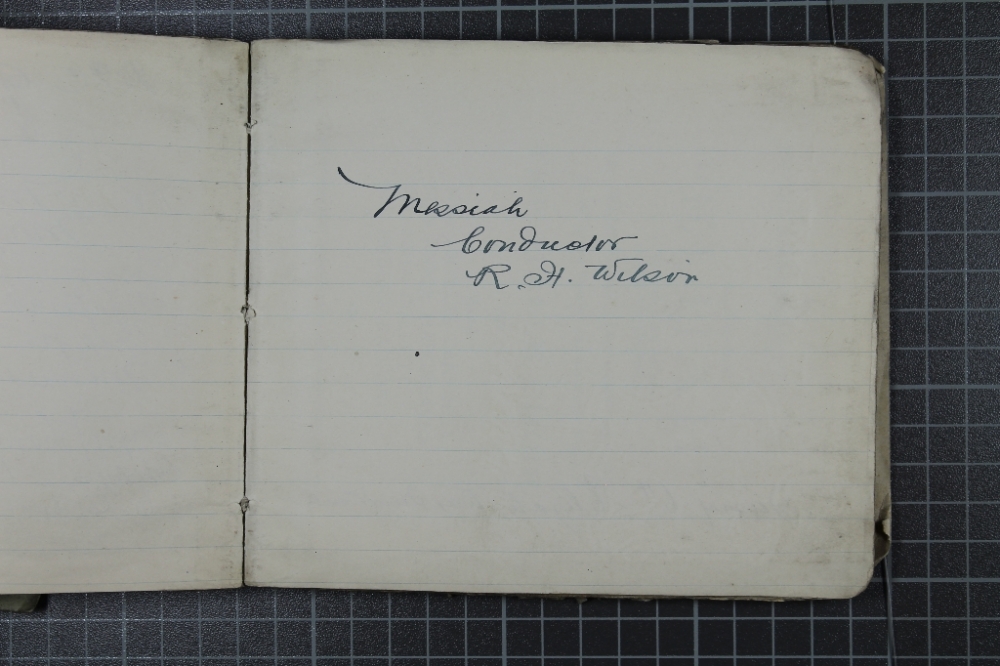 Messiah
Conductor
R. H. Wilson